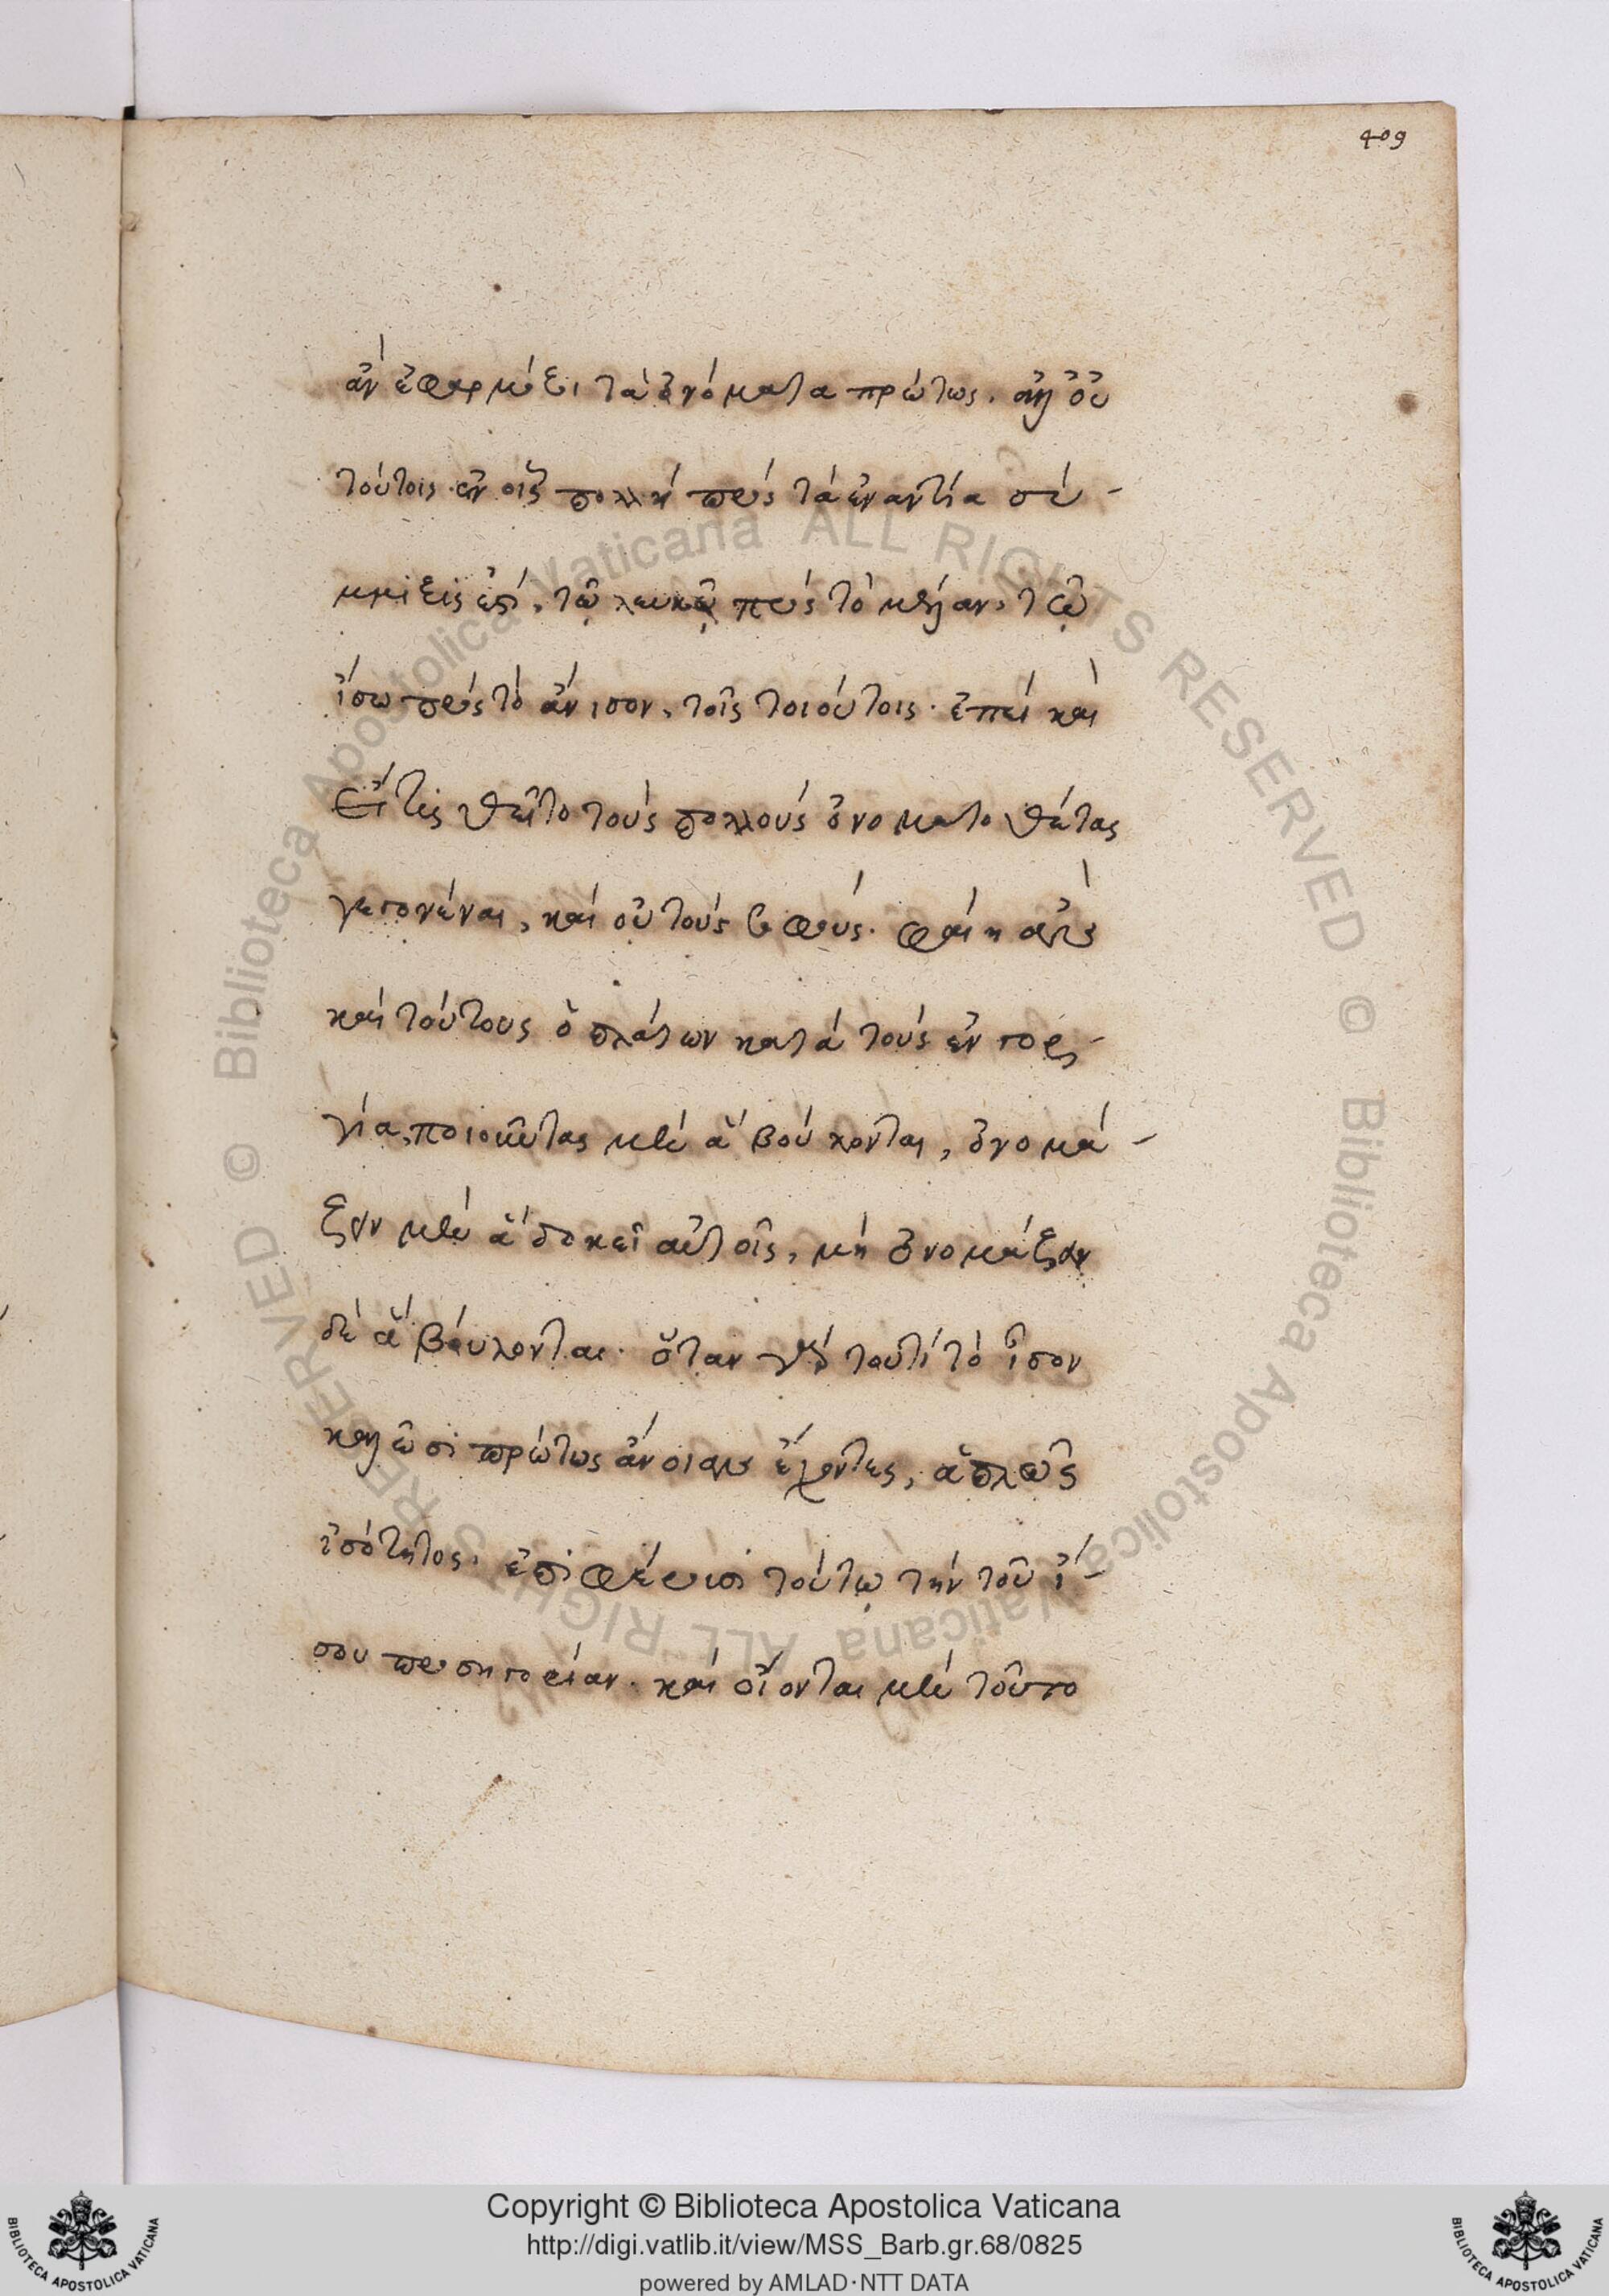 409
ἂν ἐφαρμόξει τὰ ὀνόματα πρώτως. ἀλλ' οὐ
τούτοις ἐν οἷς πολλὴ πρὸς τὰ ἐναντία σύ-
μμιξις ἐστί, τῷ λευκῷ πρὸς τὸ μέλαν, τῷ
ἴσω πρὸς τὸ ἄνισον, τοῖς τοιούτοις. ἐπεὶ καὶ
εἴ τις θεῖτο τοὺς πολλοὺς ὀνοματοθέτας
γεγονέναι, καὶ οὐ τοὺς σοφούς. φαίη ἄν
καὶ τούτους ὁ πλάτων κατὰ τοὺς ἐν γορ-
γία, ποιοῦντας μὲν ἃ βούλονται, ὀνομά-
ζειν μὲν ἃ δοκεῖ αὐτοῖς, μὴ ὀνομάζειν
δὲ ἃ βούλονται. ὅταν γὰρ τουτὶ τὸ ἴσον
καλῶσι πρώτως ἐννοίας ἔχοντες, ἁπλῶς
ἰσότητος, ἐπιφέρουσι τούτῳ τὴν τοῦ ἴ-
σου προσηγορίαν. καὶ οἴονται μὲν τοῦτο
Copyright © Biblioteca Apostolica Vaticana
http://digi.vatlib.it/view/MSS_Barb.gr.68/0825
powered by AMLAD·NTT DATA
BIBLIOTECA APOSTOLICA VATICANA
BIBLIOTECA APOSTOLICA VATICANA
© Biblioteca Apostolica Vaticana ALL RIGHTS RESERVED
© Biblioteca Apostolica Vaticana ALL RIGHTS RESERVED